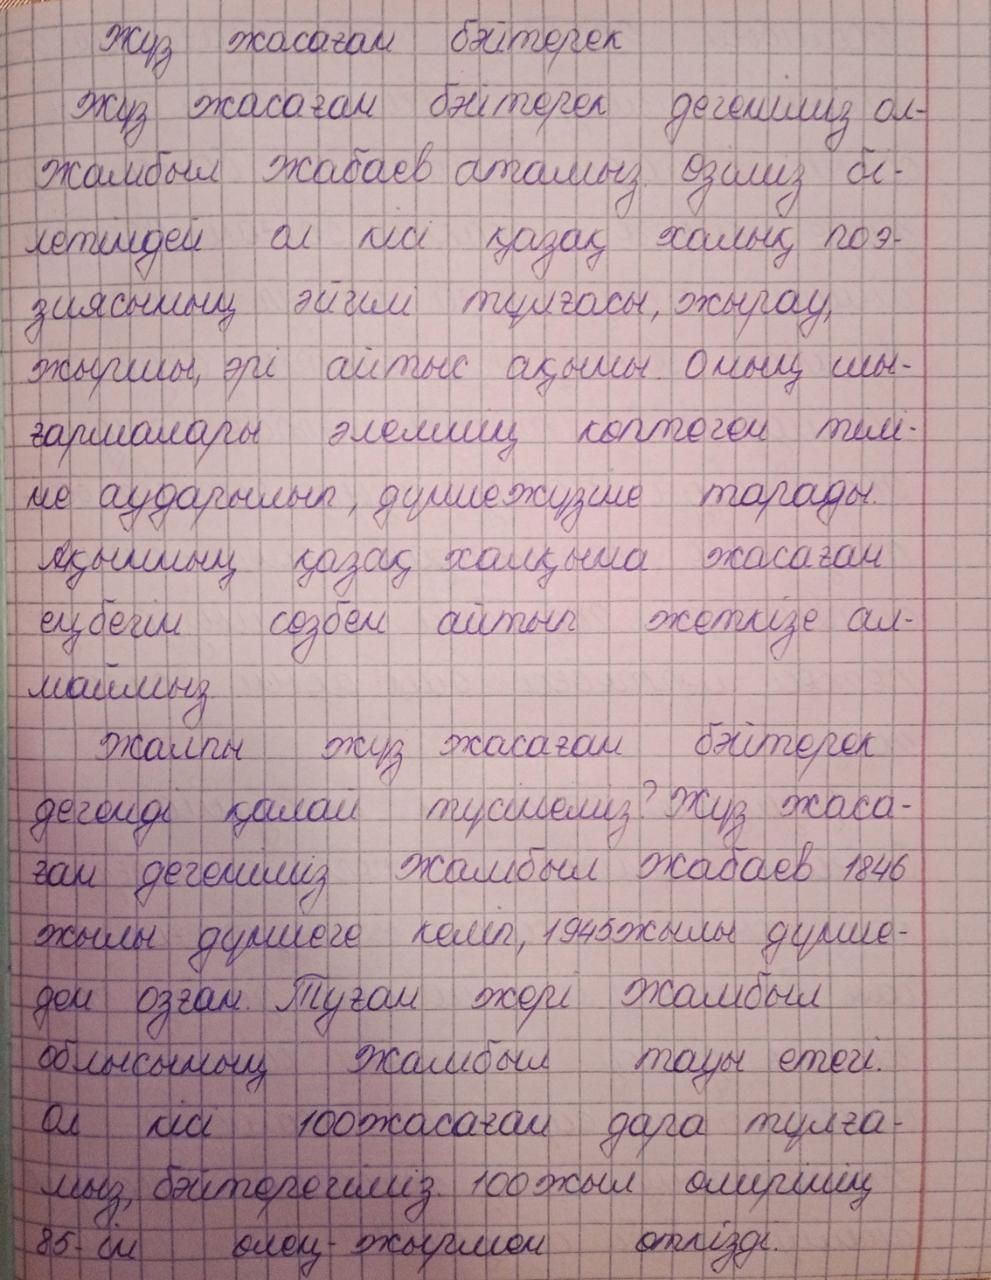 Жүз жасаған бәйтерек
Жүз жасаған бәйтерек дегеніміз ол-
Жамбыл Жабаев атамыз. Өзіміз бі-
летіндей ол кісі қазақ халық поэ-
зиясының әйгілі тұлғасы, жырау,
жыршы, әрі айтыс ақыны. Оның шы-
ғармалары әлемнің көптеген тілі-
не аударылып, дүниежүзіне тарады.
Ақынның қазақ халқына жасаған
еңбегін сөзбен айтып жеткізе ал-
маймыз.
Жалпы жүз жасаған бәйтерек
дегенді қалай түсінеміз? Жүз жаса-
ған дегеніміз Жамбыл Жабаев 1846
жылы дүниеге келіп, 1945 жылы дүние-
ден озған. Туған жері Жамбыл
облысының Жамбыл тауы етегі.
Ол кісі 100 жасаған дара тұлға-
мыз, бәйтерегіміз. 100 жыл өмірінің
85-ін өлең-жырмен өткізді.